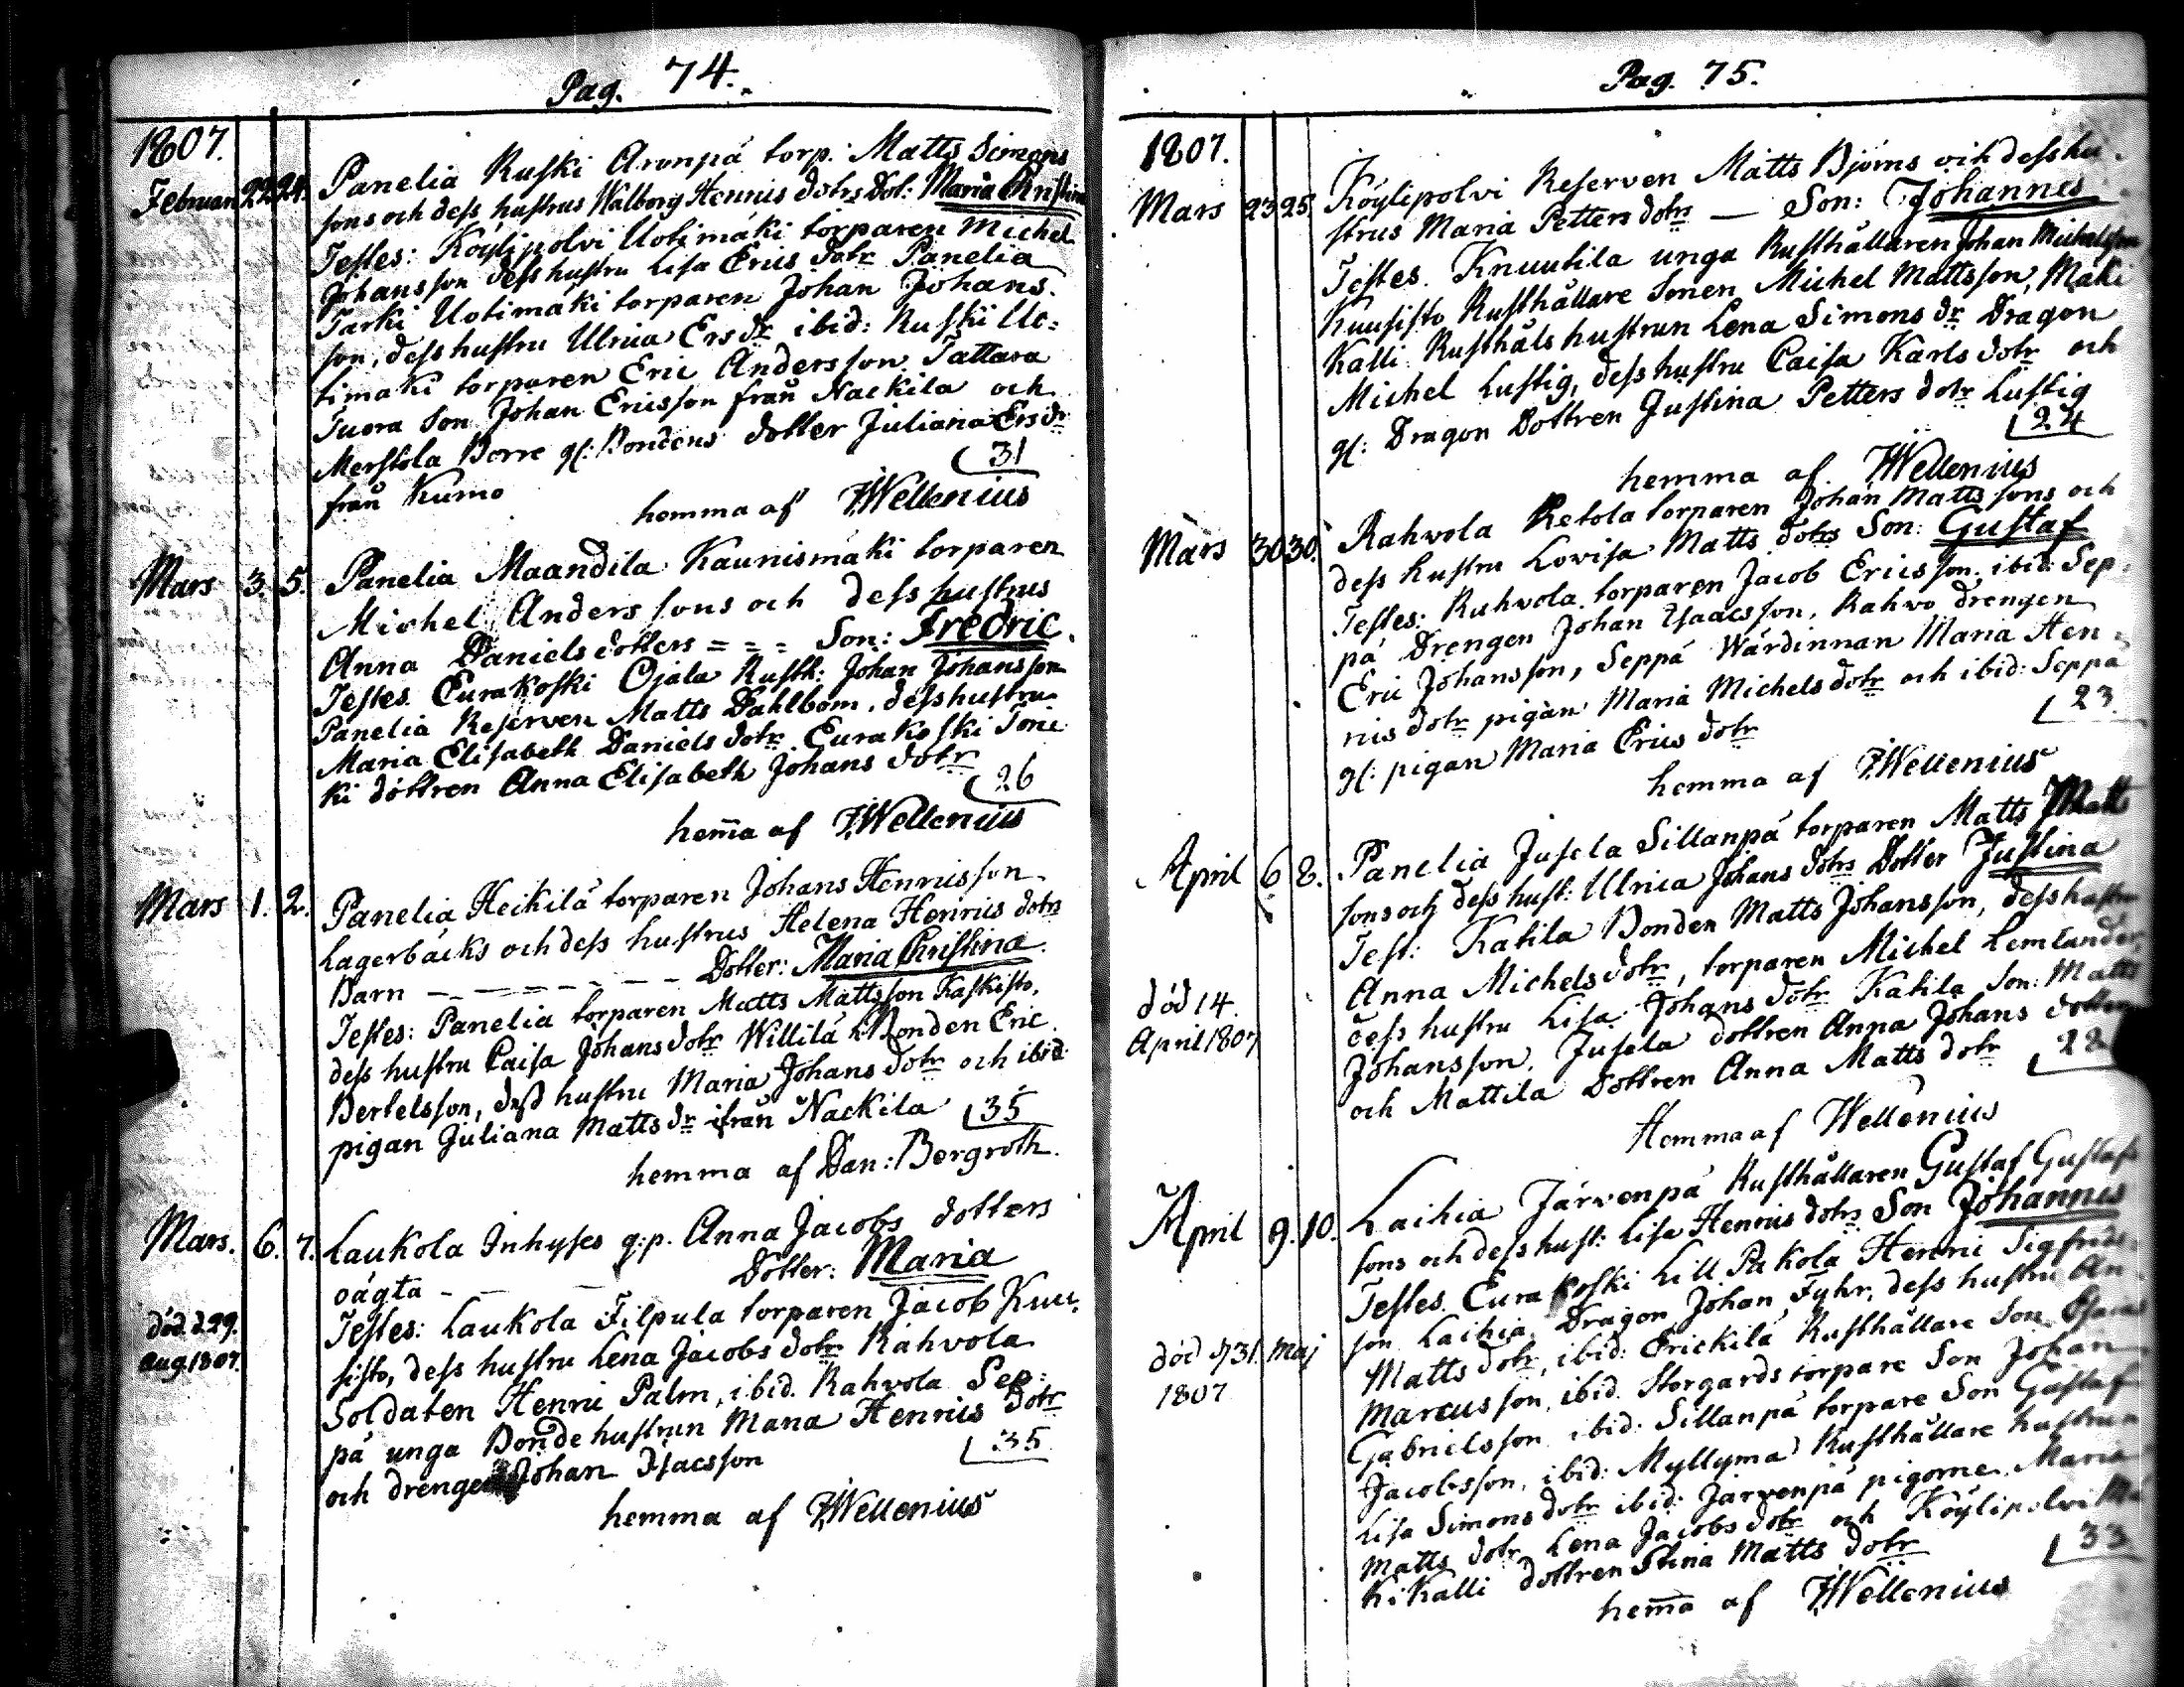 Pag. 74.
1807.
Februari 22 24. Panelia Ruski Aronpä torp. Matts Simons
sons och dess hustrus Walborg Henricsdotrs Dot: Maria Christina
Testes: Köylipolvi Uotimäki torparen Michel
Johansson dess hustru Lisa Erics dotr Panelia
Tarki Uotimäki torparen Johan Johans
son, dess hustru Ulrica Ersdr ibid: Ruski Uo=
timäki torparen Eric Andersson. Tattara
Tuora Son Johan Ericsson från Nackila och
Merstola Borre gl: Bondens dotter Juliana Ersdr
från Kumo 31
hemma af Wellenius
Mars 3. 5. Panelia Maandila Kaunismäki torparen
Michel Anderssons och dess hustrus
Anna Daniels dotters = = = Son: Fredric.
Testes. Eurakoski Ojala Rusth: Johan Johansson
Panelia Reserven Matts Dahlbom, dess hustru
Maria Elisabeth Daniels dotr Eurakoski Toric
ki dottren Anna Elisabeth Johans dotr
26
hem̄a af Wellenius
Mars 1. 2. Panelia Heikilä torparen Johans Henricsson
Lagerbäcks och dess hustrus Helena Henrics dotrs
Barn - - - - - - Dotter: Maria Christina.
Testes: Panelia torparen Matts Mattsson Kaskisto,
dess hustru Caisa Johansdotr Willilä Bonden Eric
Bertelsson, dess hustru Maria Johans dotr och ibid
pigan Juliana Mattsdr ifrån Nackila 35
hemma af Dan: Bergroth.
Mars. 6. 7. Laukola Inhyses q:p. Anna Jacobs dotters
oägta - - - Dotter: Maria
död d 29.
Aug 1807.
Testes: Laukola Filpula torparen Jacob Kuu-
sisto, dess hustru Lena Jacobs dotr Rahvola
Soldaten Henric Palm, ibid. Rahvola Sep-
pä unga Bondehustrun Maria Henrics dotr
och drengen Johan Isacsson 35
hemma af Wellenius
Pag. 75.
1807.
Mars 23 25. Köylipolvi Reserven Matts Björns och dess hu-
strus Maria Petters dotrs — Son: Johannes
Testes. Knuutila unga Rusthållaren Johan Michelsson
Kuusisto Rusthållare Sonen Michel Mattsson, Mäki
Kalli Rusthåls hustrun Lena Simons dr Dragon
Michel Lustig, dess hustru Caisa Karls dotr och
gl: Dragon Dottren Justina Petters dotr Lustig
24
hemma af Wellenius
Mars 30 30. Rahvola Retola torparen Johan Mattssons och
dess hustru Lovisa Matts dotrs Son: Gustaf
Testes: Ruhvola torparen Jacob Ericsson. ibid. Sep-
pä Drengen Johan Isaacsson, Rahvo drengen
Eric Johansson, Seppä Wärdinnan Maria Hen-
rics dotr pigan Maria Michels dotr och ibid: Seppä
gl: pigan Maria Erics dotr 23
hemma af Wellenius
April 6 8. Panelia Jusela Sillanpä torparen Matts Matt
sons och dess hust: Ulrica Johans dotrs Dotter Justina
Test: Katila Bonden Matts Johansson, dess hustru
Anna Michels dotr, torparen Michel Lemlander,
död 14.
April 1807
dess hustru Lisa Johans dotr Katila Son: Matts
Johansson, Jusela dottren Anna Johans dotter
och Mattila Dottren Anna Matts dotr 22
Hemma af Wellenius
April 9. 10. Laihia Järvenpä Rusthållaren Gustaf Gustafs
sons och dess hust: Lisa Henrics dotrs Son Johannes
Testes. Eurakoski Lill Pakola Henric Sigfrids
son Laihia Dragon Johan Fyhr, dess hustru An
död d 31. Maj
1807
Matts dotr, ibid: Erickilä Rusthållare Son Esaias
Marcusson, ibid. Storgårds torpare Son Johan
Gabrielsson ibid: Sillanpä torpare Son Gustaf
Jacobsson, ibid: Myllymä Rusthållare hustrun
Lisa Simons dotr ibid: Järvenpä pigorne Maria
Matts dotr Lena Jacobs dotr och Köylipolvi Mä
ki Kalli dottren Stina Matts dotr 33
hem̄a af Wellenius